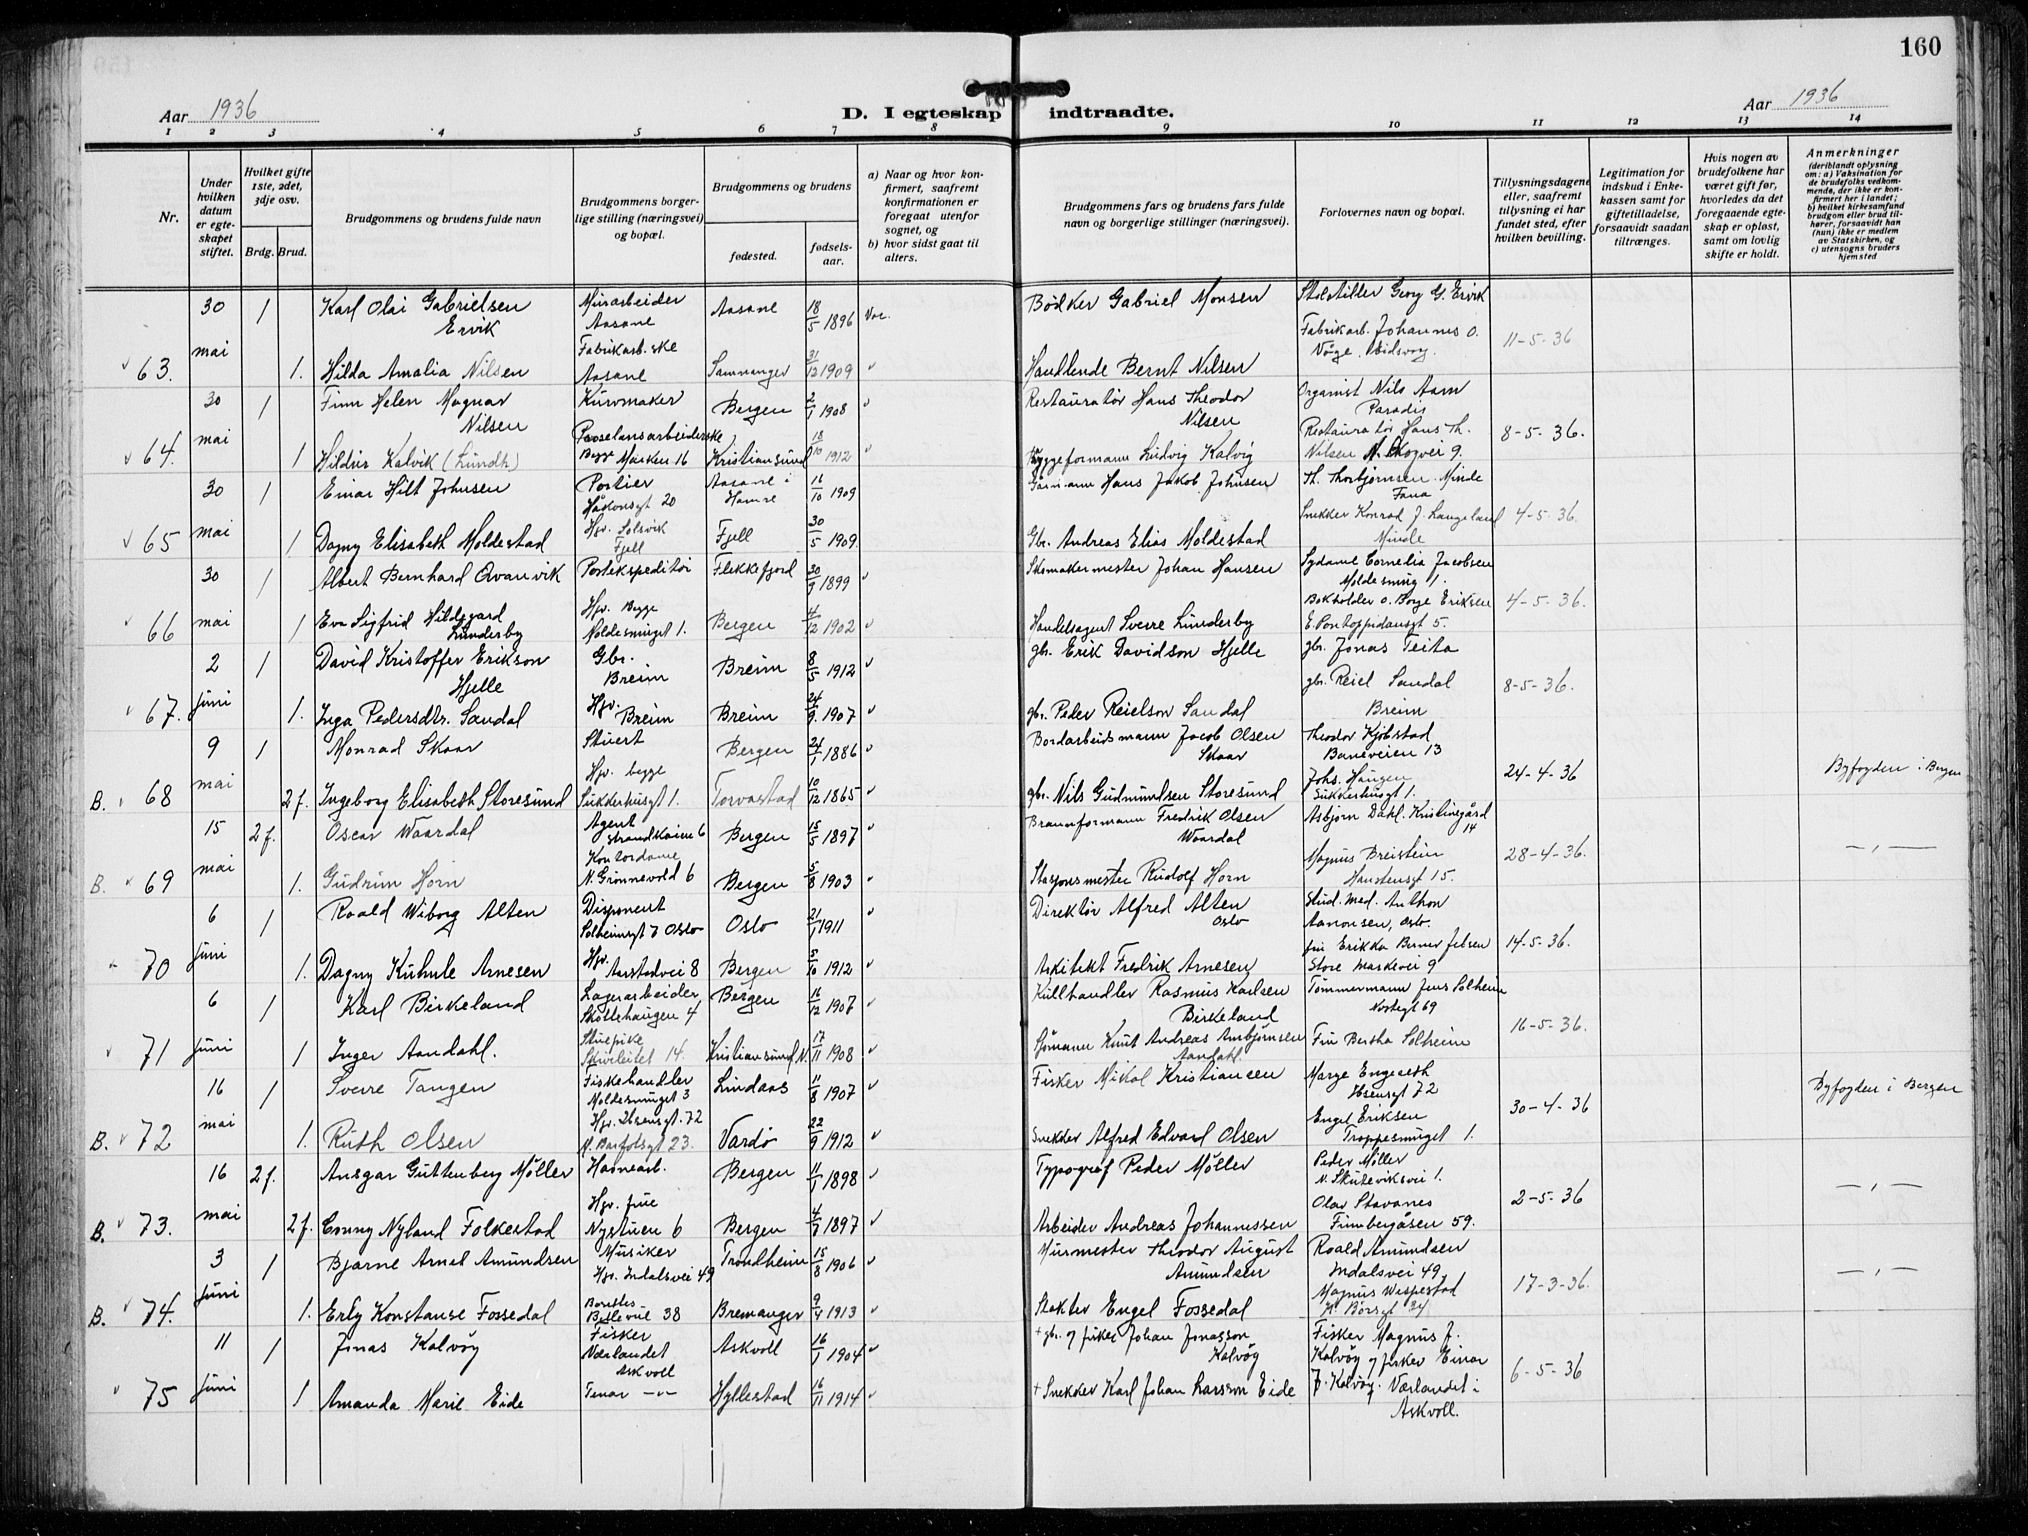 160
Aar 1936
D. I egteskap indtraadte.
Aar 1936
1 2 3 4 5 6 7 8 9 10 11 12 13 14
Nr.
Under hvilken datum er egteskapet stiftet.
Hvilket gifte 1ste, 2det, 3dje osv.
Brdg. Brud.
Brudgommens og brudens fulde navn
Brudgommens borgerlige stilling (næringsvei) og bopæl.
Brudgommens og brudens
fødested.
fødselsaar.
a) Naar og hvor konfirmert, saafremt konfirmationen er foregaat utenfor sognet, og
b) hvor sidst gaat til alters.
Brudgommens fars og brudens fars fulde navn og borgerlige stillinger (næringsvei).
Forlovernes navn og bopæl.
Tillysningsdagene eller, saafremt tillysning ei har fundet sted, efter hvilken bevilling.
Legitimation for indskud i Enkekassen samt for giftetilladelse, forsaavidt saadan tiltrænges.
Hvis nogen av brudefolkene har været gift før, hvorledes da det foregaaende egteskap er opløst, samt om lovlig skifte er holdt.
Anmerkninger
(deriblandt oplysning om: a) Vaksination for de brudefolks vedkommende, der ikke er konfirmert her i landet; b) hvilket kirkesamfund brudgom eller brud tilhører, forsaavidt han (hun) ikke er medlem av Statskirken, og c) utensogns bruders hjemsted
30 1 Karl Olai Gabrielsen Ervik Murarbeider Aasane Aasane 18/5 1896 Vac. Bødker Gabriel Monsen Georg G. Ervik
63. mai 1. Hilda Amalia Nilsen Fabrikarb.ske Aasane Samnanger 31/12 1909 Handlende Bernt Nilsen Fabrikarb. Johannes O. 11-5-36
30 1 Finn Helen Magnar Nilsen Kurvmaker Bergen 2/1 1908 Restauratør Hans Theodor Nilsen Organist Nils Aarn Paradis
64. mai 1 Kalvik (Lundh) Begge Marken 16 Kristiansund 18/10 1912 Byggeformann Ludvig Kalvig Restauratør Hans Th. Nilsen N. Skogvei 9. 8-5-36.
30 1 Einar Hilt Johnsen Portier Håkonsgt 20 Aasane i Hamre 16/10 1909 Hans Jakob Johnsen Th. Thorbjørnsen Minde Fana
65 mai 1 Dagny Elisabeth Moldestad Hjv. Solsvik Fjell Fjell 30/5 1909. Gbr. Andreas Elias Moldestad Snekker Konrad J. Langeland Minde 4-5-36.
30 1 Albert Bernhard Qvanvik Postekspeditør Flekkefjord 30/9 1899 Skomakermester Johan Hansen Sydame Cornelia Jacobsen Moldesmug 1.
66 mai 1 Eva Sigfrid Hildegard Lunderby Hjv. Begge Moldesmuget 1. Bergen 4/12 1902 Handelsagent Sverre Lunderby Bokholder O. Borge Eriksen E. Pontoppidansgt 5. 4-5-36.
2 1 David Kristoffer Erikson Hjelle Gbr. Breim Breim 8/5 1912 gbr. Erik Davidson Hjelle gbr. Jonas Teita
67. juni 1. Inga Pedersdtr. Sandal Hjv. Breim Breim 24/9. 1907 gbr. Peder Reielson Sandal gbr. Reiel Sandal Breim 8-5-36.
9 1 Monrad Skaar Stuert Bergen 24/1 1886 Bordarbeidsmann Jacob Olsen Skaar Theodor Kjøbstad Baneveien 13
B. 68 mai 2 f. Ingeborg Elisabeth Storesund Hjv. begge Sukkerhusgt 1. Torvastad 10/12 1865 gbr. Nils Gudmundsen Storesund Johs. Haugen Sukkerhusgt 1. 24-4-36 Byfogden i Bergen
15 2 f. Oscar Waardal Agent Strandkaien 6 Bergen 15/5 1897 Brannformann Fredrik Olsen Waardal Asbjørn Dahl. Kristinegård 14
B. 69 mai 1. Gudrun Horn Kontordame N. Grønnevold 6 Bergen 5/8 1903 Stasjonsmester Rudolf Horn Magnus Breistein Haustensgt 15. 28-4-36. — „ —
6 1 Roald Wiborg Alten Disponent Solheimsgt 7 Oslo Oslo 21/1 1911 Direktør Alfred Alten Oslo Stud. med. Anthon Aanonsen, Oslo.
70 juni 1. Dagny Kuhnle Arnesen Hjv. Aarstadvei 8 Bergen 3/10 1912 Arkitekt Fredrik Arnesen fru Erikka Berner Jelsen Store Markevei 9 14-5-36.
6 1 Karl Birkeland Lagerarbeider Skottehaugen 4 Bergen 16/12 1907 Kullhandler Rasmus Karlsen Birkeland Tømmermann Jens Solheim Nostegt 69
71 juni 1 Inger Aandahl. Stuepike Skivebakken 14. Kristiansund N. 17/11 1908 Sjømann Knut Andreas Ambjørnsen Aandahl. Fru Bertha Solheim 16-5-36.
16 1 Sverre Tangen Fiskehandler Moldesmuget 3 Lindaas 11/8 1907 Fisker Mikal Kristiansen Marge Engeseth Ibsensgt 72
B. 72 mai 1. Ruth Olsen Hjv. Ibsensgt. 72 N. Barfotsgt 23. Vardø 22/9 1912 Snekker Alfred Edvard Olsen Engel Eriksen Trappesmuget 1. 30-4-36 Byfogden i Bergen
16 2 f. Ansgar Guttenberg Møller Havnearb. Bergen 11/1 1898 Typograf Peder Møller Peder Møller N. Skuteviksvei 1.
B. 73. mai 2 f. Conny Nyland Folkestad Hjv. frue Nystuen 6 Bergen 4/7 1897 Arbeider Andreas Johannessen Olav Stavanes Finnbergåsen 59. 2-5-36 — „ —
3 1 Bjarne Arnet Amundsen Musiker Hjv. Indalsvei 49 Trondheim 15/8 1906 Murmester Theodor August Amundsen Roald Amundsen Indalsvei 49
B. 74. juni 1. Erly Konstanse Fossedal 38 Bremanger 9/4 1913 Engel Fossedal Magnus 17-3-36. — „ —
11 1 Jonas Kalvøy Fisker Værlandet Askvoll Askvoll 16/1 1904 + gbr. og fisker Johan Jonasson Kalvøy Fisker Magnus J. Kalvøy og fisker Einar
75 juni 1 Amanda Marie Eide Hyllestad 16/11 1914 + Snekker Karl Johan Larsson Eide J. Kalvøy. Værlandet i Askvoll. 6-5-36